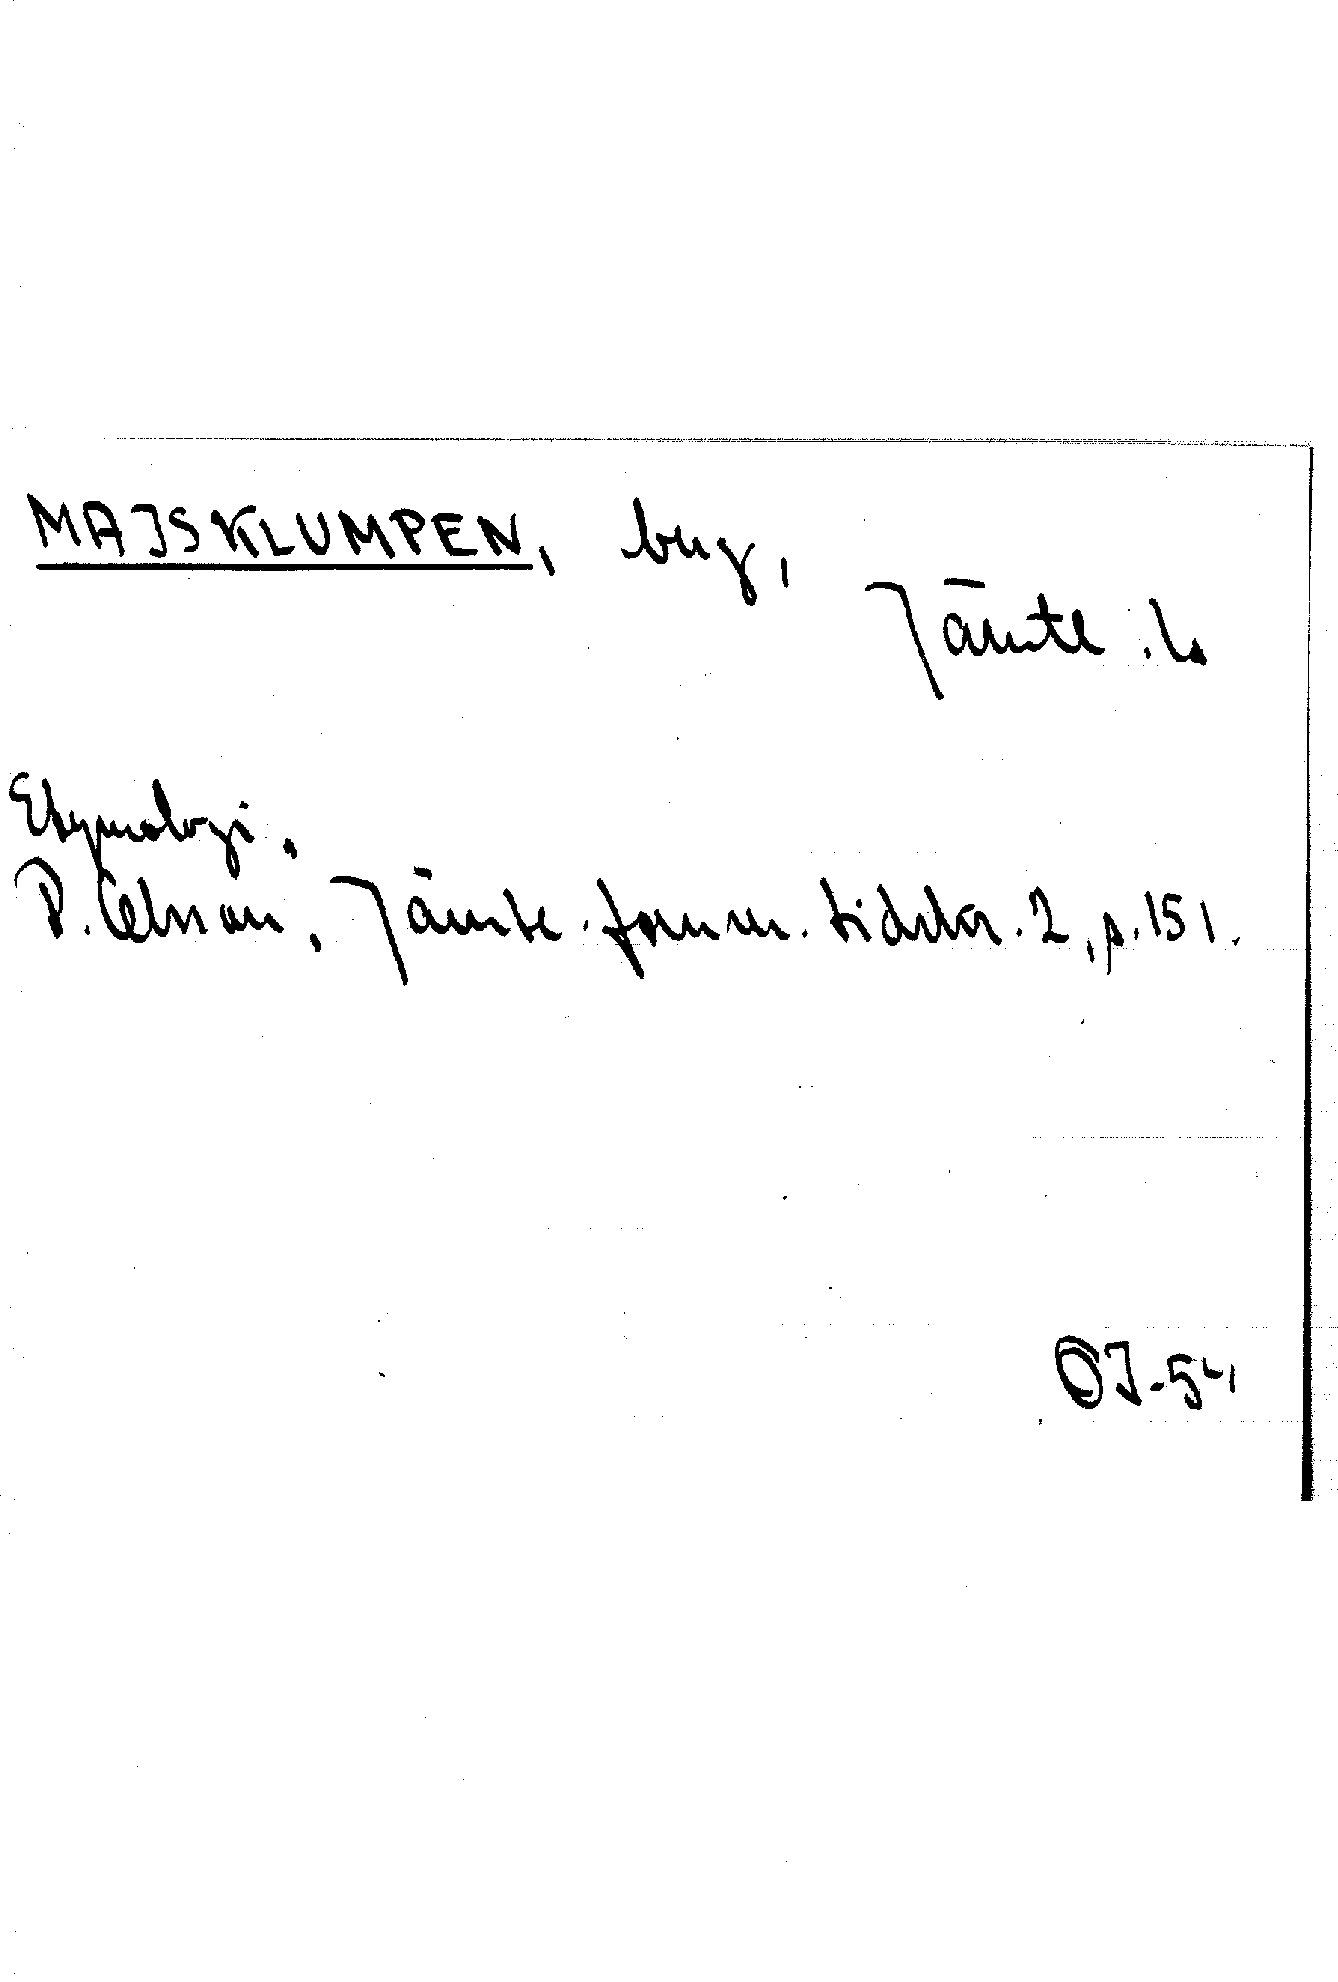 MAJSKLUMPEN, berg,
Jämtl. l.
Etymologi.
P. Olsson, Jämtl. fornm. tidskr. 2, p. 151.
OJ-54